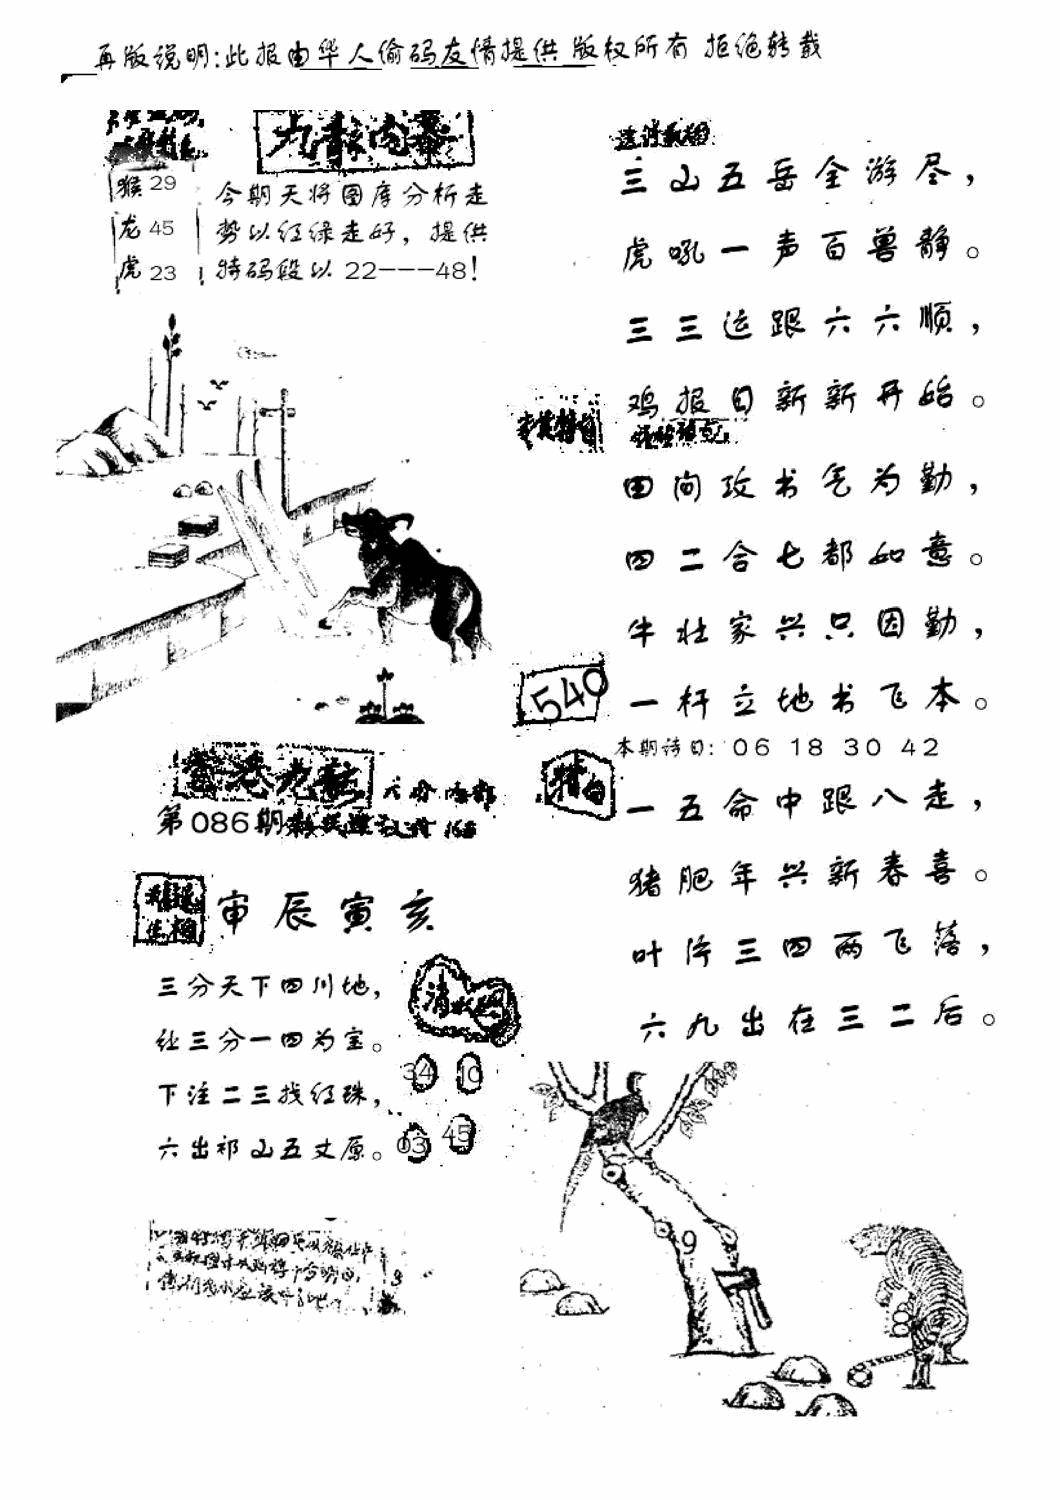 再版说明:此报由华人偷码友情提供 版权所有 拒绝转载
九龙内幕
猴 29
龙 45
虎 23
今期天将图库分析走
势以红绿走好，提供
特码段以 22---48!
三山五岳全游尽，
虎吼一声百兽静。
三三运跟六六顺，
鸡报日新新开始。
田间攻书气为勤，
四二合七都如意。
牛壮家兴只因勤，
一杆立地书飞本。
540
本期诗曰: 06 18 30 42
特句
一五命中跟八走，
猪肥年兴新春喜。
叶片三四两飞落，
六九出在三二后。
香港九龙
第086期
申辰寅亥
三分天下四川地，
处三分一四为宝。
下注二三找红珠，
六出祁山五丈原。
34 10
03 45
9